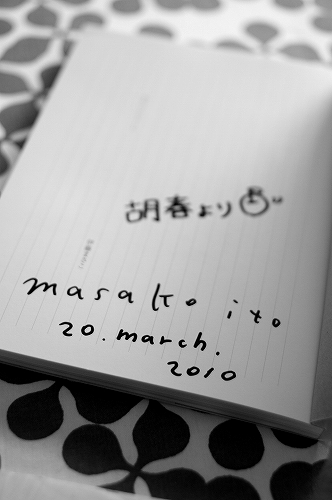 胡春より
masako ito
20. march.
2010